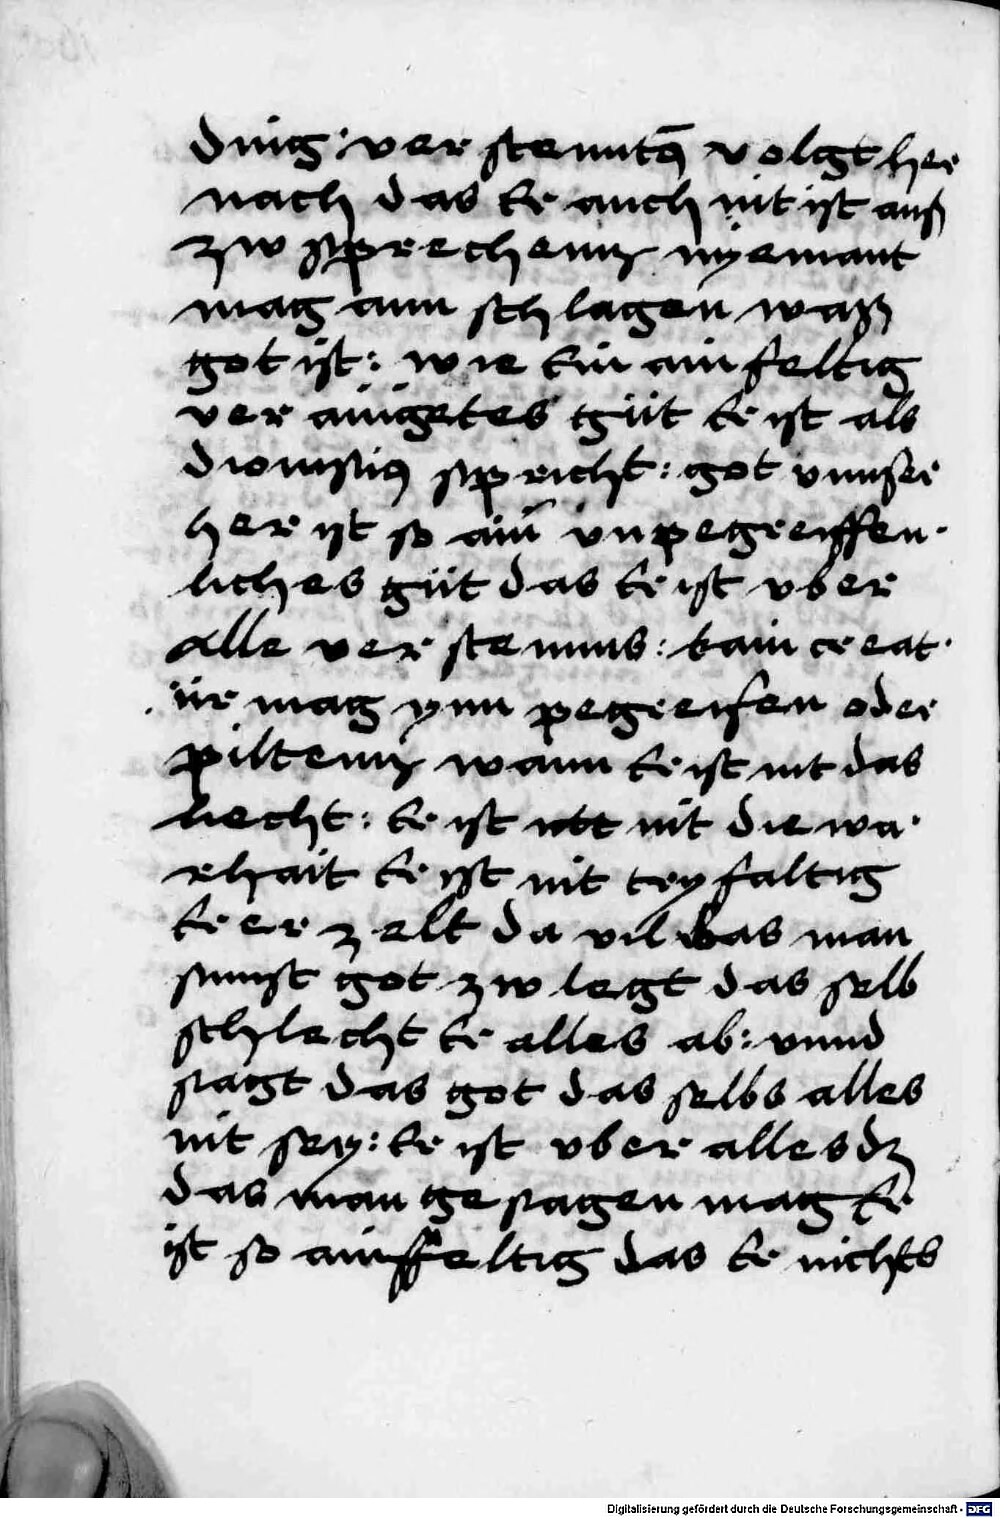 ding: ver stenntꝰ volgt her
nach das Er auch nit ist auß
zw sprechenn nyemant
mag ann schlagen waß
got ist: wie Ein ainfeltig
ver ainigetes güt Er ist als
dionisiꝰ spricht: got vnnser
her ist so ain vnpegreiffen-
liches güt das Er ist vber
alle ver stennus: kain creat-
ür mag ynn pegreifen oder
piltenn wann Er ist nit das
liecht: Er ist nit die wa-
rhait Er ist nit tryfaltig
Er er zelt da vil das man
sunst got zw legt das selb
schlecht Er alles ab: vnnd
sagt das got das selbs alles
nit sey: Er ist vber alles dz
das man ge sagen mag Er
ist so ainffeltig das Er nichts
Digitalisierung gefördert durch die Deutsche Forschungsgemeinschaft - DFG